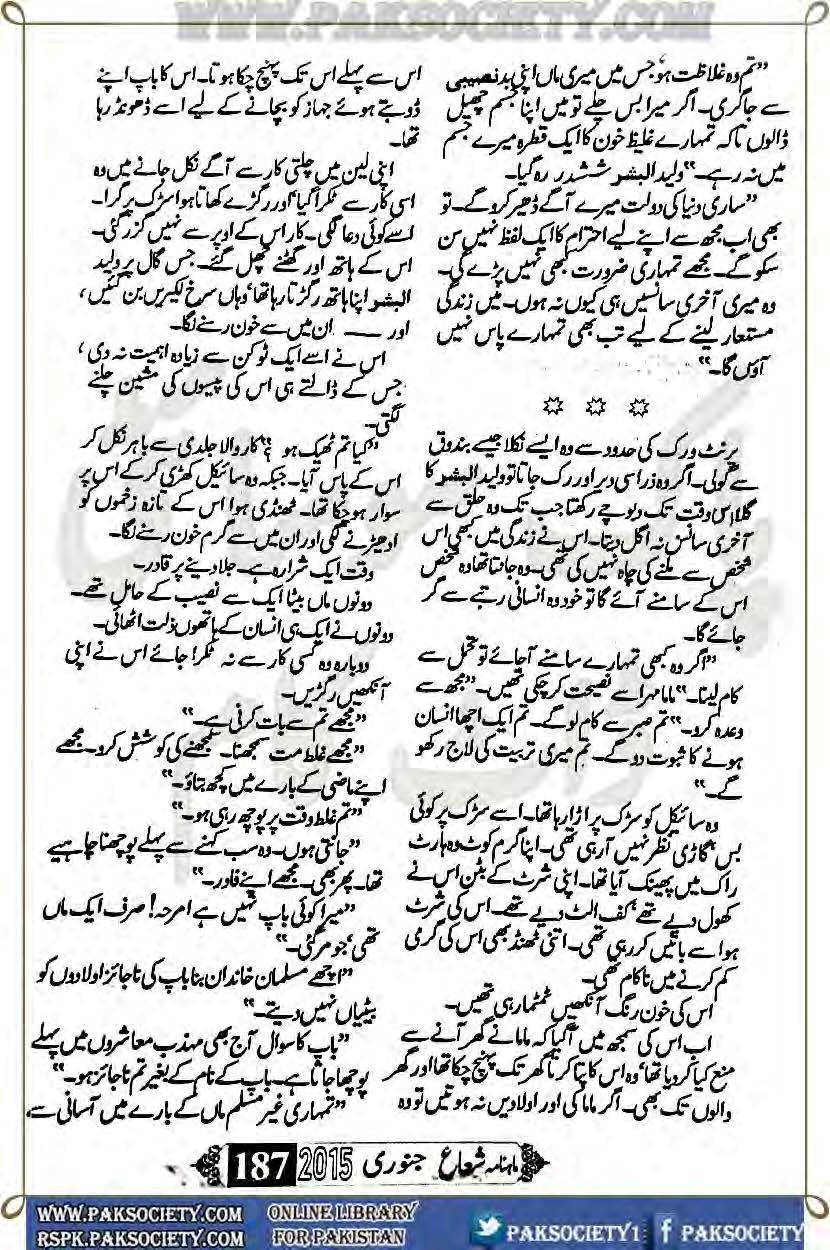 WWW.PAKSOCIETY.COM
”تم وہ غلاظت ہو، جس میں میری ماں اپنی بدنصیبی
سے جا گری۔ اگر میرا بس چلے تو میں اپنا جسم چھیل
ڈالوں تاکہ تمہارے غلیظ خون کا ایک قطرہ میرے جسم
میں نہ رہے۔“ ولید البشر ششدر رہ گیا۔
”ساری دنیا کی دولت میرے آگے ڈھیر کرو گے۔ تو
بھی اب مجھ سے اپنے لیے احترام کا ایک لفظ نہیں سن
سکو گے۔ مجھے تمہاری ضرورت کبھی نہیں پڑے گی۔
وہ میری آخری سانسیں ہی کیوں نہ ہوں۔ میں زندگی
مستعار لینے کے لیے تب بھی تمہارے پاس نہیں
آؤں گا۔“
برنٹ ورک کی حدود سے وہ ایسے نکلا جیسے بندوق
سے گولی۔ اگر وہ ذرا سی دیر اور رک جاتا تو ولید البشر کا
گلا اس وقت تک دبوچے رکھتا جب تک وہ حلق سے
آخری سانس نہ اگل دیتا۔ اس نے زندگی میں کبھی اس
شخص سے ملنے کی چاہ نہیں کی تھی۔ وہ جانتا تھا وہ شخص
اس کے سامنے آئے گا تو خود وہ انسانی رتبے سے گر
جائے گا۔
”اگر وہ کبھی تمہارے سامنے آجائے تو تحمل سے
کام لینا۔“ ماما مہر اسے نصیحت کر چکی تھیں۔ ”مجھ سے
وعدہ کرو۔“ ”تم صبر سے کام لو گے۔ تم ایک اچھا انسان
ہونے کا ثبوت دو گے۔ تم میری تربیت کی لاج رکھو
گے۔“
وہ سائیکل کو سڑک پر اڑا رہا تھا۔ اسے سڑک پر کوئی
بس، گاڑی نظر نہیں آرہی تھی۔ اپنا گرم کوٹ وہ ہارٹ
راک میں پھینک آیا تھا۔ اپنی شرٹ کے بٹن اس نے
کھول دیے تھے، کف الٹ دیے تھے۔ اس کی شرٹ
ہوا سے باتیں کر رہی تھی۔ اتنی ٹھنڈ بھی اس کی گرمی
کم کرنے میں ناکام تھی۔
اس کی خون رنگ آنکھیں ٹمٹما رہی تھیں۔
اب اس کی سمجھ میں آگیا کہ ماما نے گھر آنے سے
منع کیا کر دیا تھا، وہ اس کا پتا کرتا گھر تک پہنچ چکا تھا اور گھر
والوں تک بھی۔ اگر ماما کی اور اولادیں نہ ہوتیں تو وہ
اس سے پہلے اس تک پہنچ چکا ہوتا۔ اس کا باپ اپنے
ڈوبتے ہوئے جہاز کو بچانے کے لیے اسے ڈھونڈ رہا
تھا۔
اپنی لین میں چلتی کار سے آگے نکل جانے میں وہ
اسی کار سے ٹکرا گیا، اور رگڑے کھاتا ہوا سڑک پر گرا۔
اسے کوئی دعا لگی۔ کار اس کے اوپر سے نہیں گزر گئی۔
اس کے ہاتھ اور گھٹنے چھل گئے۔ جس گال پر ولید
البشر اپنا ہاتھ رگڑتا رہا تھا، وہاں سرخ لکیریں بن گئیں،
اور ۔۔۔ ان میں سے خون رسنے لگا۔
اس نے اسے ایک ٹوکن سے زیادہ اہمیت نہ دی،
جس کے ڈالتے ہی اس کی پیسوں کی مشین چلنے
لگتی۔
”کیا تم ٹھیک ہو؟“ کار والا جلدی سے باہر نکل کر
اس کے پاس آیا۔ جبکہ وہ سائیکل کھڑی کر کے اس پر
سوار ہو چکا تھا۔ ٹھنڈی ہوا اس کے تازہ زخموں کو
ادھیڑنے لگی اور ان میں سے گرم خون رسنے لگا۔
وقت ایک شرارہ ہے۔ جلا دینے پر قادر۔
دونوں ماں بیٹا ایک سے نصیب کے حامل تھے۔
دونوں نے ایک ہی انسان کے ہاتھوں ذلت اٹھائی۔
دوبارہ وہ کسی کار سے نہ ٹکرا جائے اس نے اپنی
آنکھیں رگڑیں۔
”مجھے تم سے بات کرنی ہے۔“
”مجھے غلط مت سمجھنا۔ سمجھنے کی کوشش کرو۔ مجھے
اپنے ماضی کے بارے میں کچھ بتاؤ۔“
”تم غلط وقت پر پوچھ رہی ہو۔“
”جانتی ہوں۔ وہ سب کہنے سے پہلے پوچھنا چاہیے
تھا۔ پھر بھی۔ مجھے اپنے فادر۔“
”میرا کوئی باپ نہیں ہے امرحہ! صرف ایک ماں
تھی، جو مر گئی۔“
”اچھے مسلمان خاندان بنا باپ کی ناجائز اولادوں کو
بیٹیاں نہیں دیتے۔“
”باپ کا سوال آج بھی مہذب معاشروں میں پہلے
پوچھا جاتا ہے۔ باپ کے نام کے بغیر تم ناجائز ہو۔“
”تمہاری غیر مسلم ماں کے بارے میں آسانی سے
ماہنامہ شعاع جنوری 2015 187
WWW.PAKSOCIETY.COM ONLINE LIBRARY
RSPK.PAKSOCIETY.COM FOR PAKISTAN
PAKSOCIETY1 PAKSOCIETY